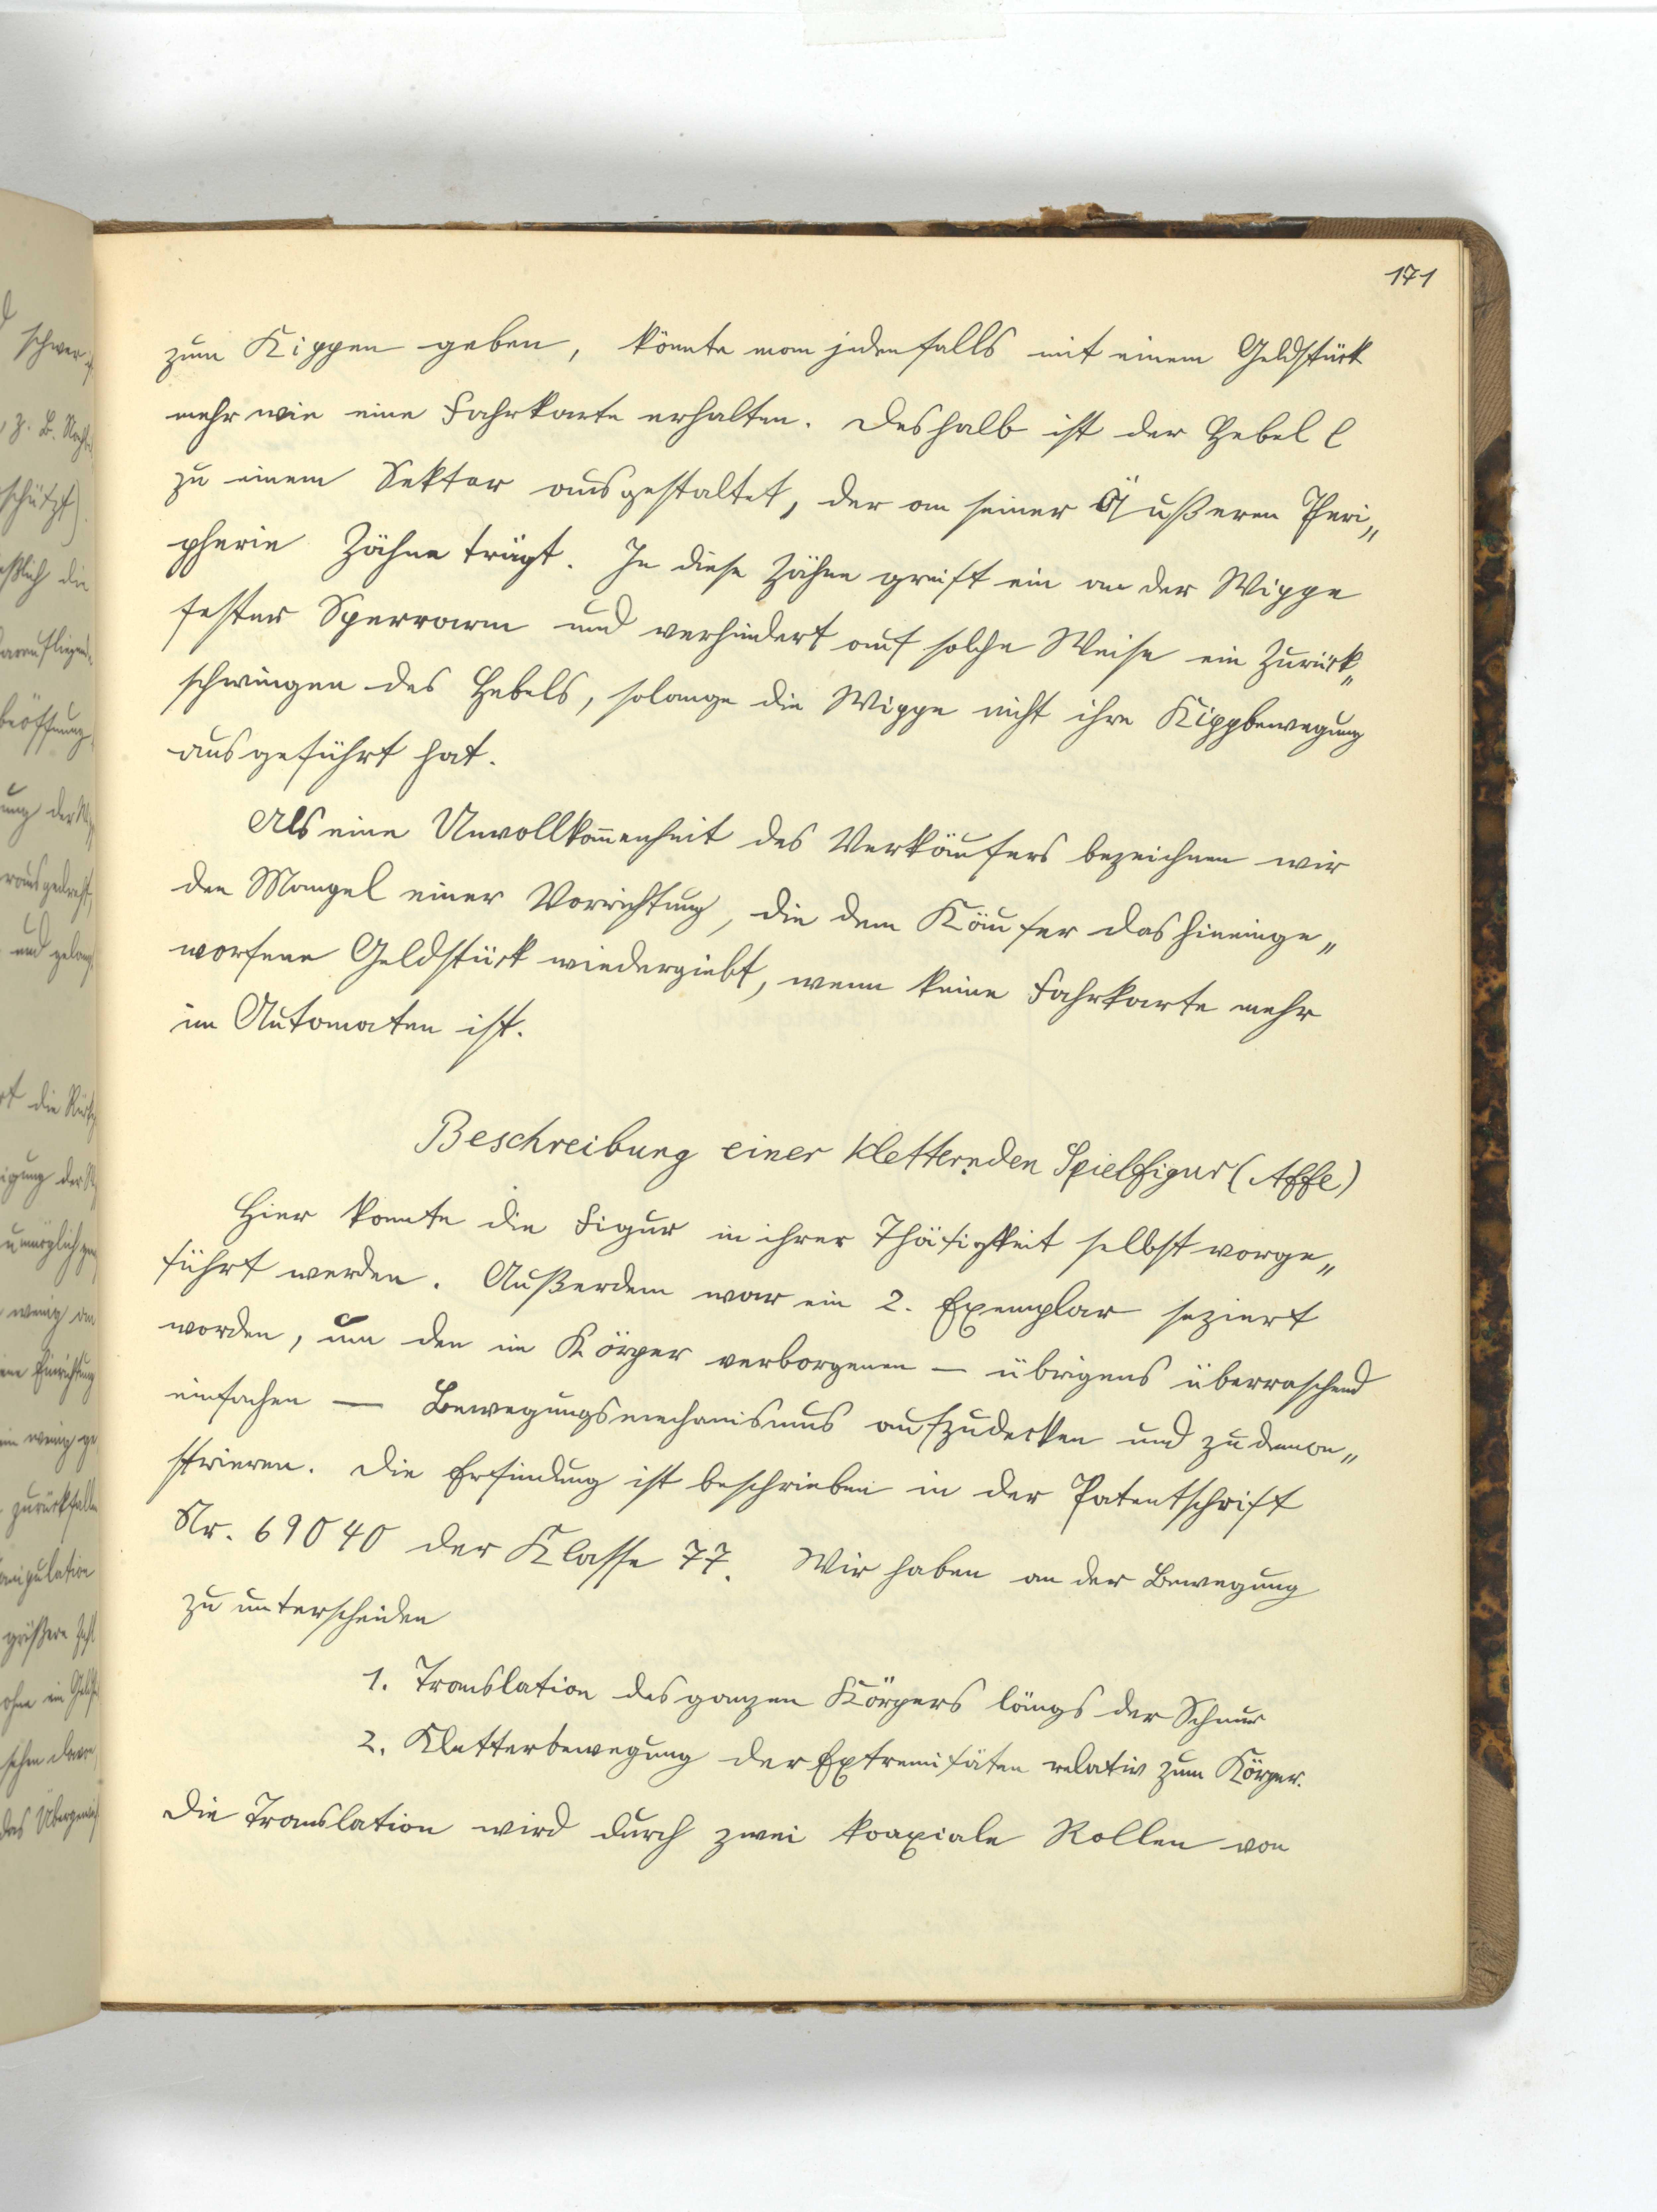 171
zum Kippen geben, könnte man jedenfalls mit einem Geldstück
mehr wie eine Fahrkarte erhalten. Deshalb ist der Hebel l
zu einem Sektor ausgestaltet, der an seiner Äußeren Peri„
pherie Zähne trägt. In diese Zähne greift ein an der Wippe
fester Sperrarm und verhindert auf solche Weise ein Zurück„
schwingen des Hebels, solange die Wippe nicht ihre Kippbewegung
ausgeführt hat.
Als eine Unvollkom̄enheit des Verkäufers bezeichnen wir
den Mangel einer Vorrichtung, die dem Käufer das hineinge„
worfene Geldstück wiedergiebt, wenn keine Fahrkarte mehr
im Automaten ist.
Beschreibung einer kletternden Spielfigur (Affe)
Hier konnte die Figur in ihrer Thätigkeit selbst vorge„
führt werden. Außerdem war ein 2. Exemplar seziert
worden, um den im Körper verborgenen — übrigens überraschend
einfachen — Bewegungsmechanismus aufzudecken und zu demon„
strieren. Die Erfindung ist beschrieben in der Patentschrift
Nr. 69040 der Klasse 77. Wir haben an der Bewegung
zu unterscheiden
1. Translation des ganzen Körpers längs der Schnur
2. Kletterbewegung der Extremitäten relativ zum Körper.
Die Translation wird durch zwei koaxiale Rollen von